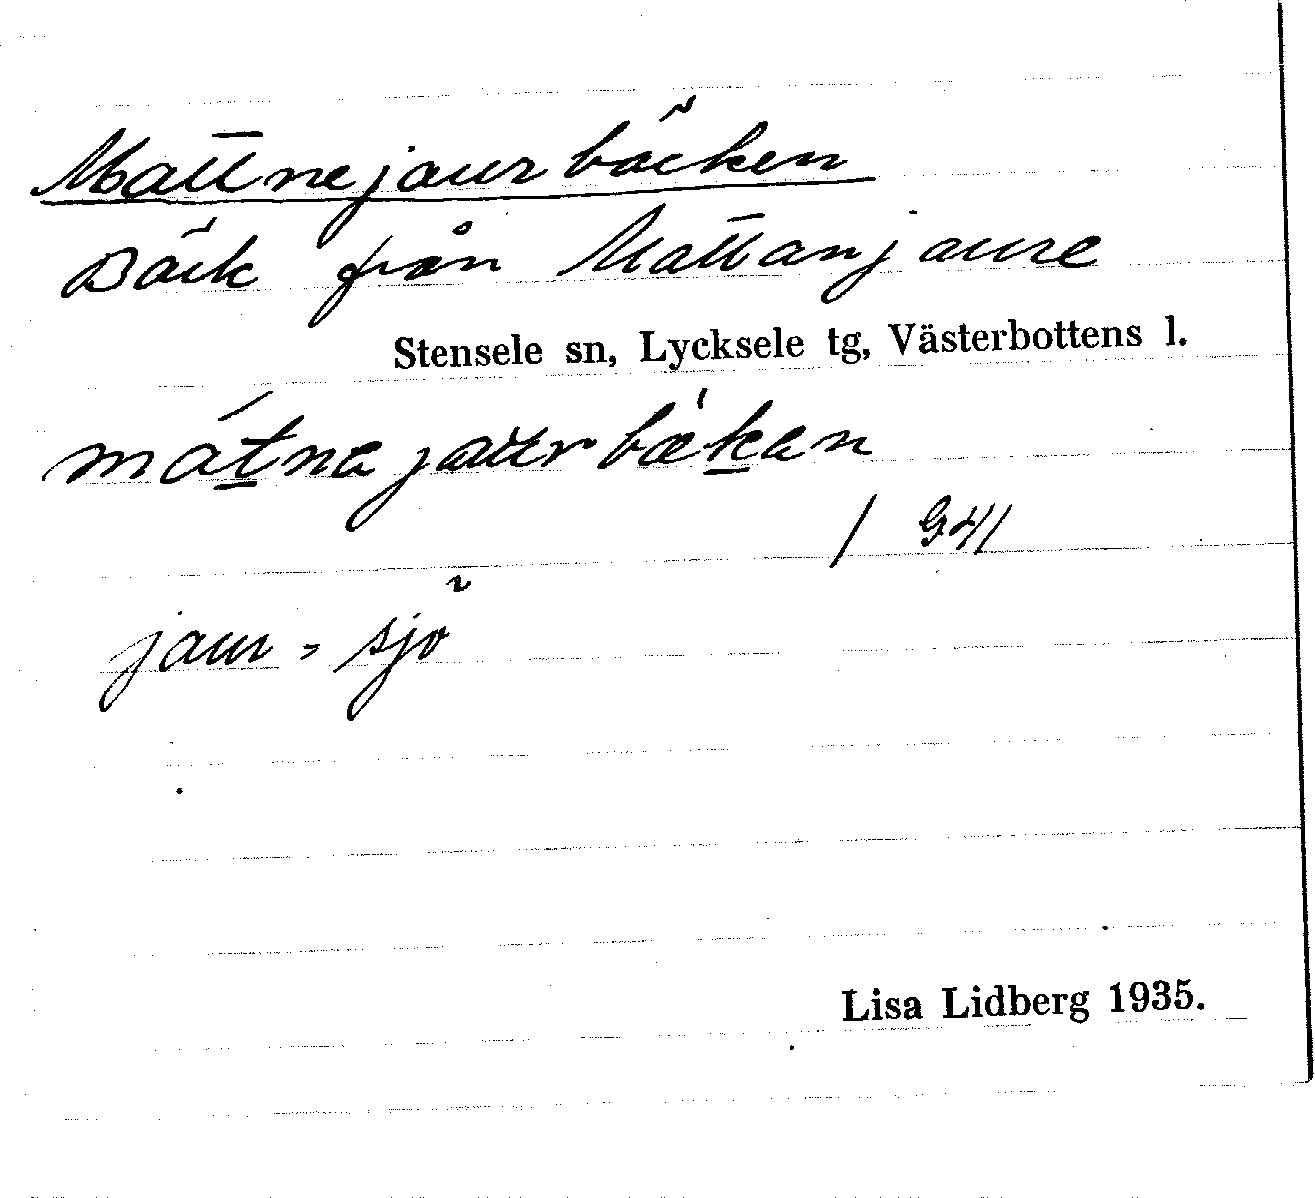 Mattnejaurbäcken
Bäck från Mattanjaure
Stensele sn, Lycksele tg, Västerbottens l.
mátnajaurbækan
/ G41
jaur = sjö
Lisa Lidberg 1935.